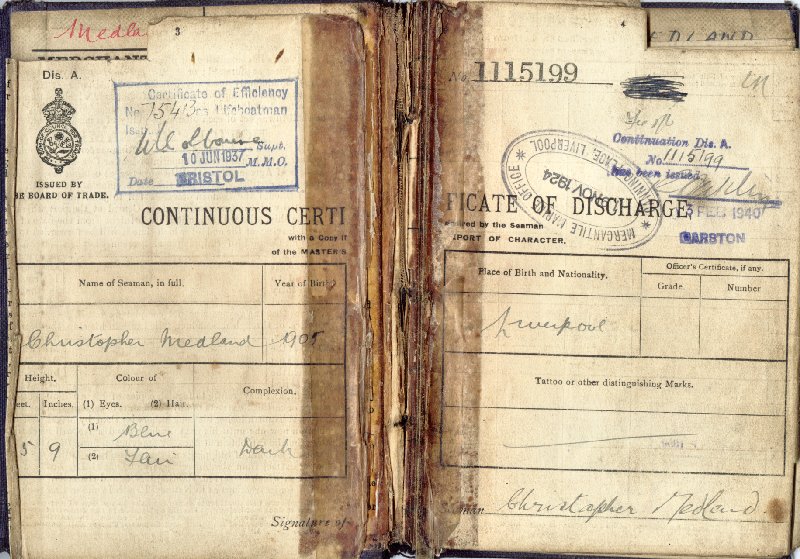 Medla
3
MERCHAN
Dis. A.
ISSUED BY
HE BOARD OF TRADE.
Certificate of Efficiency
No 7543 as Lifeboatman
Supt.
10 JUN 1937 M.M.O.
Date BRISTOL
CONTINUOUS CERTI
with a Copy if
of the MASTER'S
Name of Seaman, in full.
Year of Birth
Christopher Medland 1905
Height.
Colour of
Complexion.
eet. Inches. (1) Eyes. (2) Hair.
5 9
(1) Blue
(2) Fair
Dark
Signature of
4
EDLAND
No. 1115199
Continuation Dis. A.
No. 1115199
has been issued
MERCANTILE MARINE OFFICE
PLACE, LIVERPOOL
NOV 1924
FEB 1940
GARSTON
FICATE OF DISCHARGE
uired by the Seaman
PORT OF CHARACTER.
Place of Birth and Nationality.
Officer's Certificate, if any.
Grade.
Number
Liverpool
Tattoo or other distinguishing Marks.
man Christopher Medland